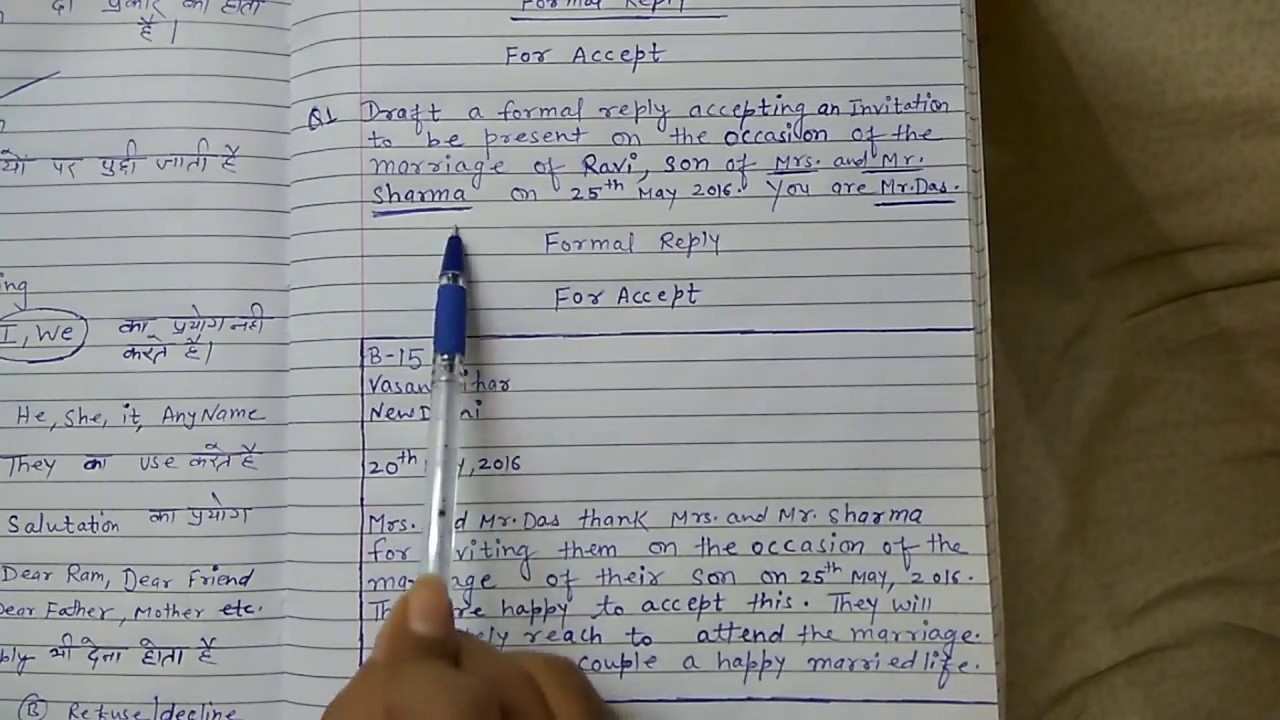 दो प्रकार का होता
है।
पर पुछी जाती है
I, We का प्रयोग नही
करते है।
He, She, it, Any Name
They का use करते है
Salutation का प्रयोग
Dear Ram, Dear Friend
Dear Father, Mother etc.
भी देना होता है
(B) Refuse/decline
Formal Reply
For Accept
Q1 Draft a formal reply accepting an Invitation
to be present on the occasion of the
marriage of Ravi, son of Mrs. and Mr.
Sharma on 25th May 2016. You are Mr.Das.
Formal Reply
For Accept
B-15
New
20th , 2016
Mrs. Mr. Das thank Mrs. and Mr. Sharma
for them on the occasion of the
of their son on 25th May, 2016.
happy to accept this. They will
reach to attend the marriage.
couple a happy married life.